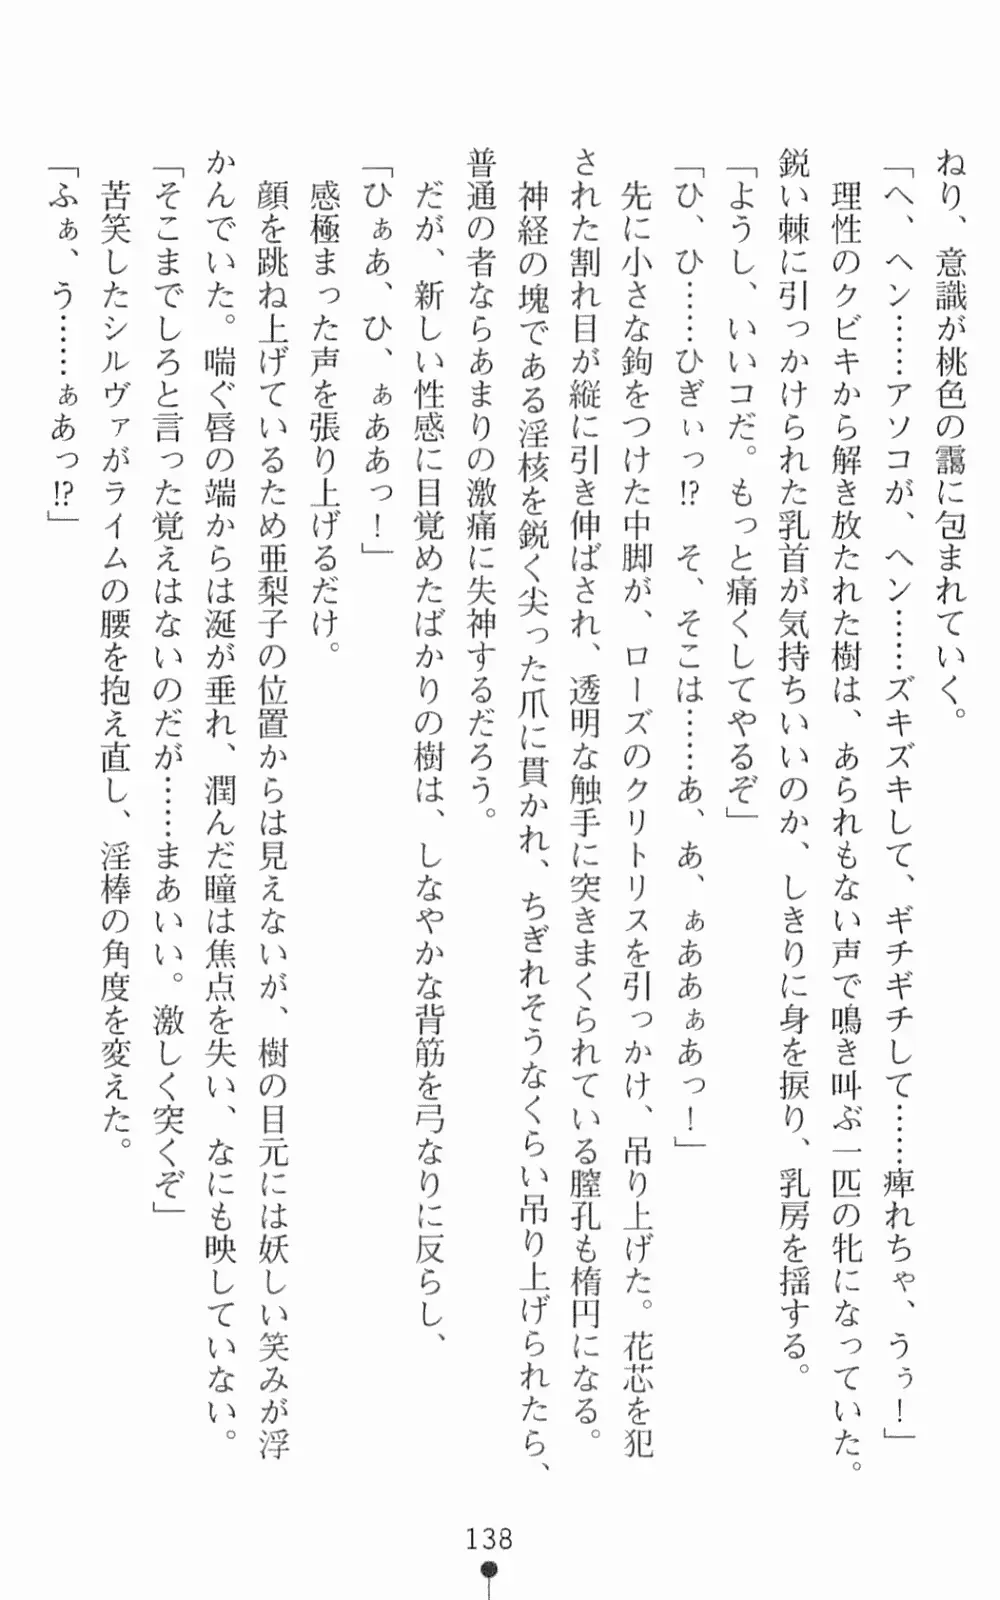 ねり、意識が桃色の靄に包まれていく。
「ヘ、ヘン……アソコが、ヘン……ズキズキして、ギチギチして……痺れちゃ、うぅ！」
理性のクビキから解き放たれた樹は、あられもない声で鳴き叫ぶ一匹の牝になっていた。
鋭い棘に引っかけられた乳首が気持ちいいのか、しきりに身を捩り、乳房を揺する。
「ようし、いいコだ。もっと痛くしてやるぞ」
「ひ、ひ……ひぎぃっ⁉　そ、そこは……あ、あ、ぁああぁあっ！」
先に小さな鉤をつけた中脚が、ローズのクリトリスを引っかけ、吊り上げた。花芯を犯
された割れ目が縦に引き伸ばされ、透明な触手に突きまくられている膣孔も楕円になる。
神経の塊である淫核を鋭く尖った爪に貫かれ、ちぎれそうなくらい吊り上げられたら、
普通の者ならあまりの激痛に失神するだろう。
だが、新しい性感に目覚めたばかりの樹は、しなやかな背筋を弓なりに反らし、
「ひぁあ、ひ、ぁああっ！」
感極まった声を張り上げるだけ。
顔を跳ね上げているため亜梨子の位置からは見えないが、樹の目元には妖しい笑みが浮
かんでいた。喘ぐ唇の端からは涎が垂れ、潤んだ瞳は焦点を失い、なにも映していない。
「そこまでしろと言った覚えはないのだが……まあいい。激しく突くぞ」
苦笑したシルヴァがライムの腰を抱え直し、淫棒の角度を変えた。
「ふぁ、う……ぁあっ⁉」
138